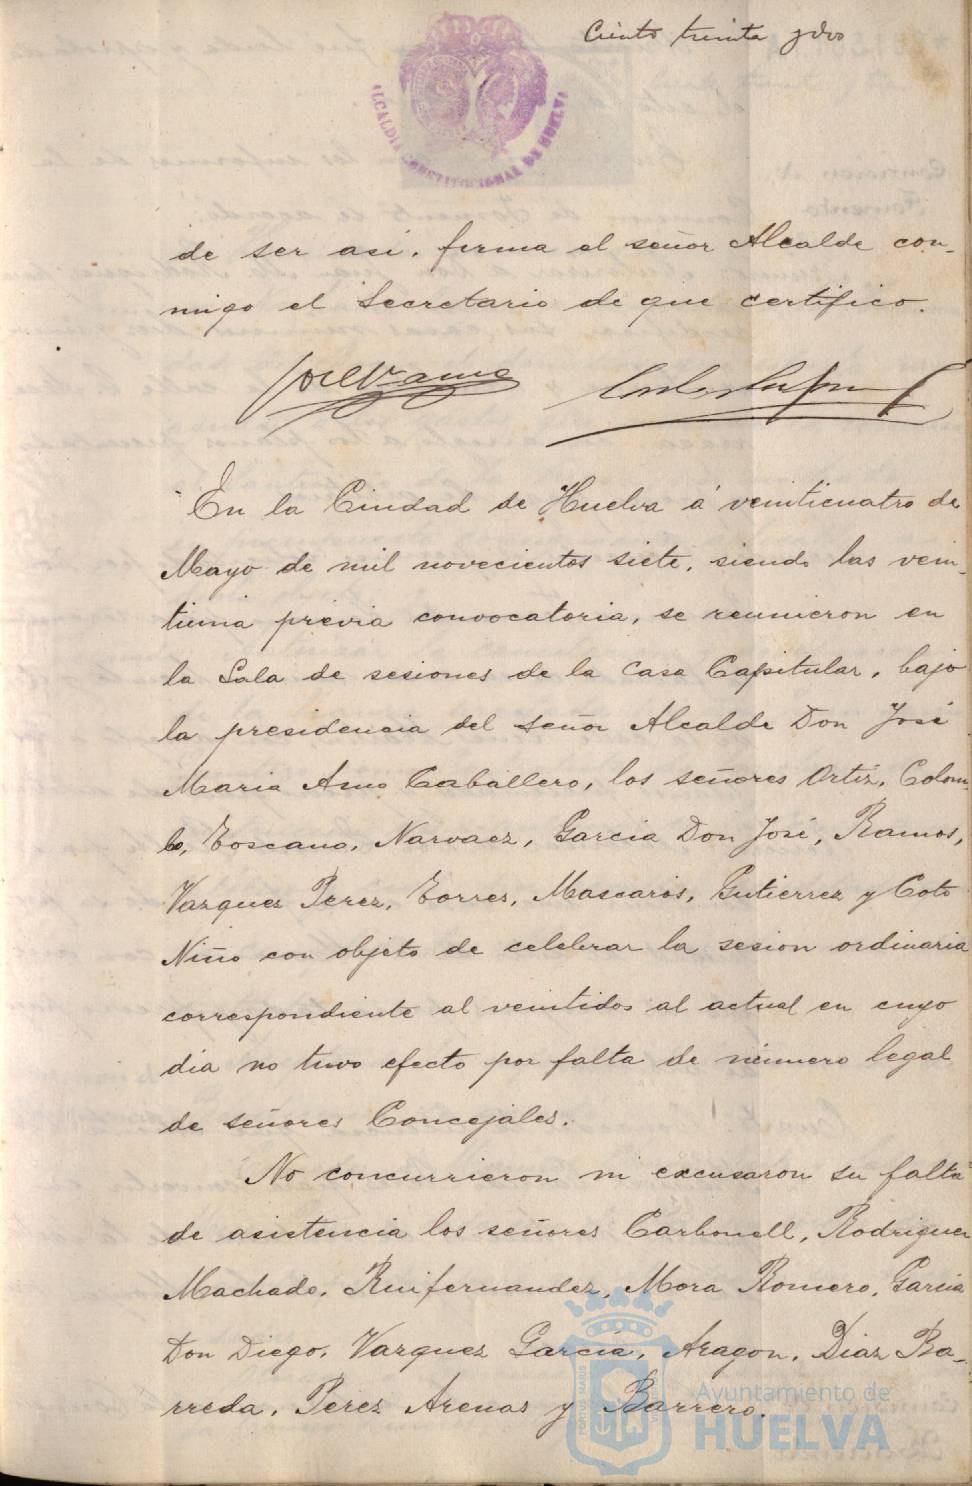 Ciento treinta y dos
ALCALDIA CONSTITUCIONAL DE HUELVA
de ser asi, firma el señor Alcalde con-
migo el Secretario de que certifico.
En la Ciudad de Huelva á veinticuatro de
Mayo de mil novecientos siete, siendo las vein-
tiuna previa convocatoria, se reunieron en
la Sala de sesiones de la Casa Capitular, bajo
la presidencia del señor Alcalde Don José
Maria Amo Caballero, los señores Ortiz, Colom-
bo, Toscano, Narvaez, Garcia Don José, Ramos,
Vazquez Perez, Torres, Mascarós, Gutierrez y Coto
Niño con objeto de celebrar la sesion ordinaria
correspondiente al veintidos al actual en cuyo
dia no tuvo efecto por falta de número legal
de señores Concejales.
No concurrieron ni excusaron su falta
de asistencia los señores Carbonell, Rodriguez
Machado, Ruifernandez, Mora Romero, Garcia
Don Diego, Vazquez García, Aragon, Diaz Ba-
rreda, Perez Arenas y Barrero.
Ayuntamiento de
HUELVA